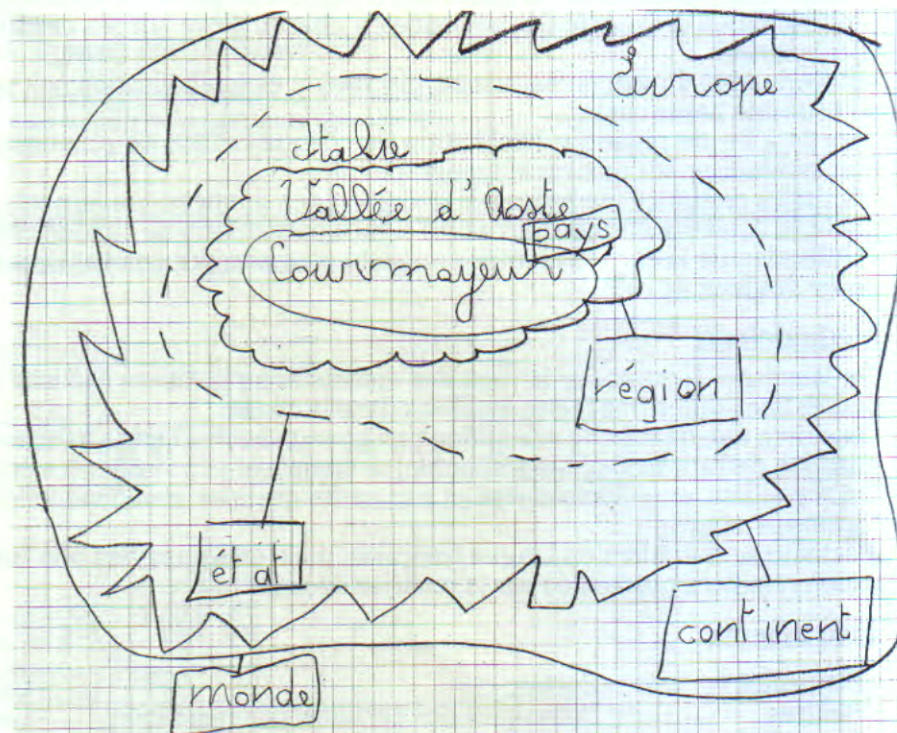 Europe
Italie
Vallée d'Aoste
pays
Courmayeur
région
état
continent
monde